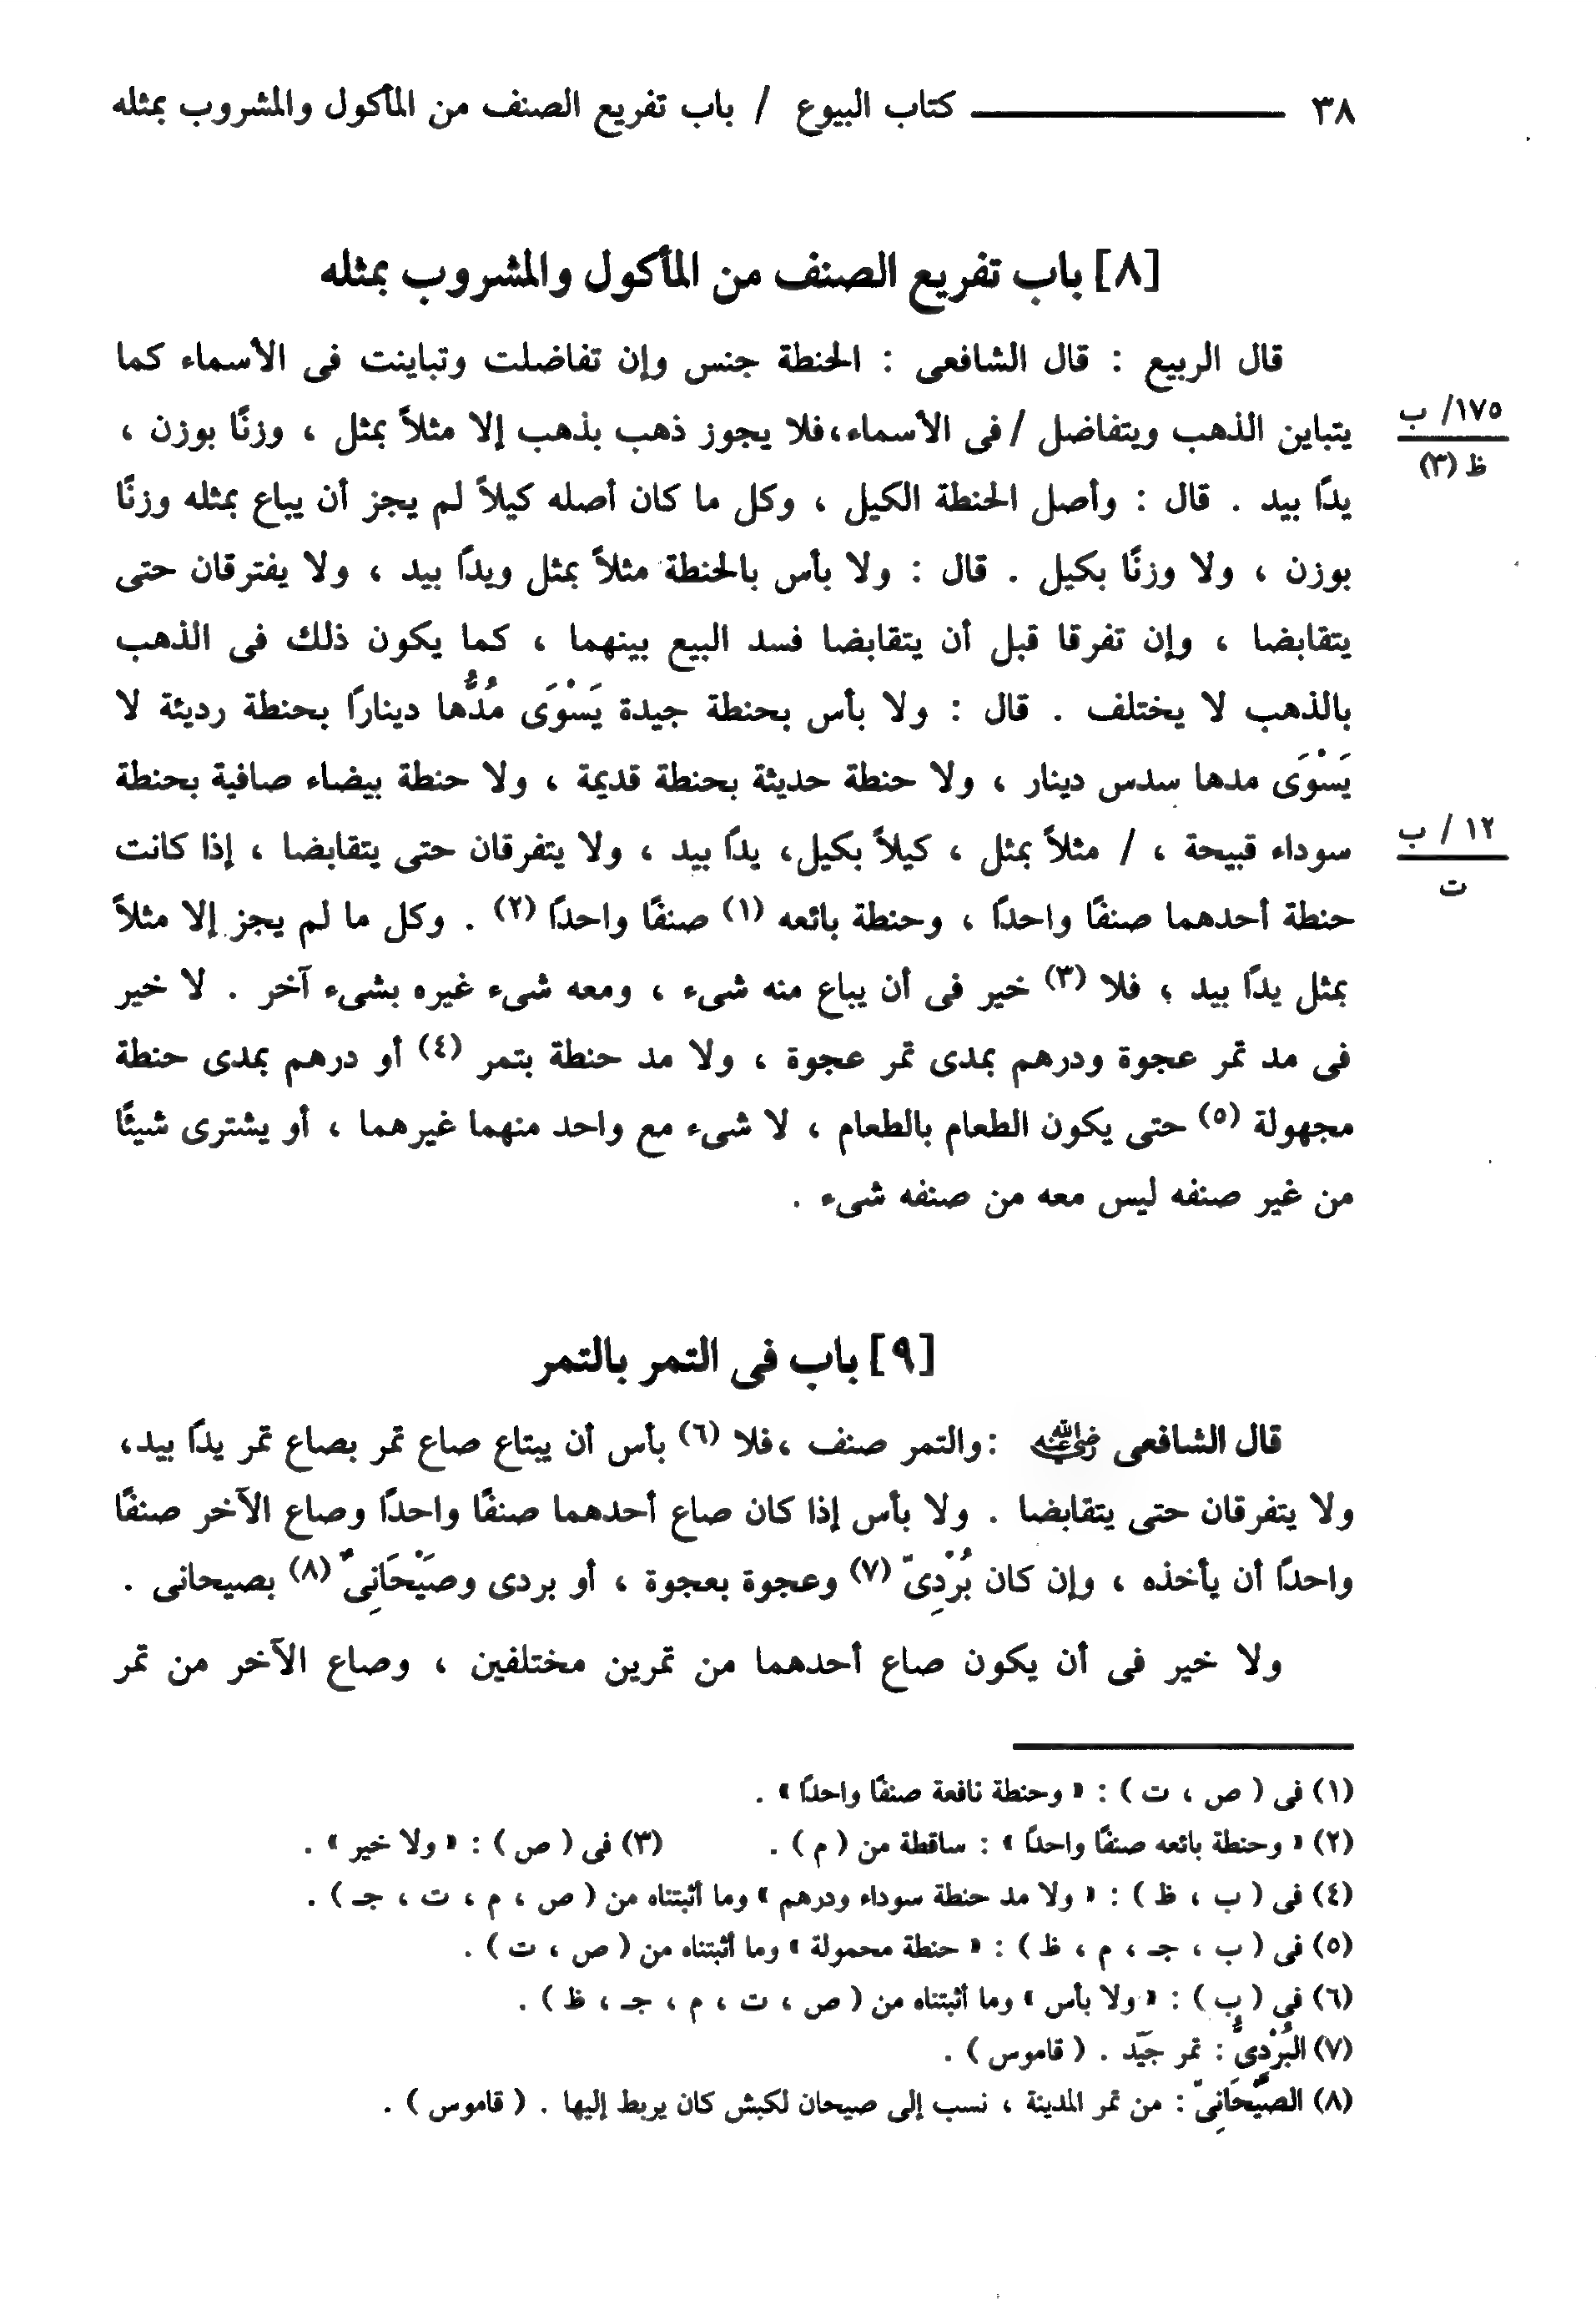 ٣٨ كتاب البيوع / باب تفريع الصنف من المأكول والمشروب بمثله
[٨] باب تفريع الصنف من المأكول والمشروب بمثله
قال الربيع : قال الشافعى : الحنطة جنس وإن تفاضلت وتباينت فى الأسماء كما
١٧٥/ ب
ظ (٣)
يتباين الذهب ويتفاضل / فى الأسماء، فلا يجوز ذهب بذهب إلا مثلاً بمثل ، وزنًا بوزن ،
يدًا بيد . قال : وأصل الحنطة الكيل ، وكل ما كان أصله كيلاً لم يجز أن يباع بمثله وزنًا
بوزن ، ولا وزنًا بكيل . قال : ولا بأس بالحنطة مثلاً بمثل ويدًا بيد ، ولا يفترقان حتى
يتقابضا ، وإن تفرقا قبل أن يتقابضا فسد البيع بينهما ، كما يكون ذلك فى الذهب
بالذهب لا يختلف . قال : ولا بأس بحنطة جيدة يَسْوَى مُدُّها دينارًا بحنطة رديئة لا
يَسْوَى مدها سدس دينار ، ولا حنطة حديثة بحنطة قديمة ، ولا حنطة بيضاء صافية بحنطة
١٢ / ب
ت
سوداء قبيحة ، / مثلاً بمثل ، كيلاً بكيل، يدًا بيد ، ولا يتفرقان حتى يتقابضا ، إذا كانت
حنطة أحدهما صنفًا واحدًا ، وحنطة بائعه (١) صنفًا واحدًا (٢) . وكل ما لم يجز إلا مثلاً
بمثل يدًا بيد ؛ فلا (٣) خير فى أن يباع منه شىء ، ومعه شىء غيره بشىء آخر . لا خير
فى مد تمر عجوة ودرهم بمدى تمر عجوة ، ولا مد حنطة بتمر (٤) أو درهم بمدى حنطة
مجهولة (٥) حتى يكون الطعام بالطعام ، لا شىء مع واحد منهما غيرهما ، أو يشترى شيئًا
من غير صنفه ليس معه من صنفه شىء .
[٩] باب فى التمر بالتمر
قال الشافعى رضي الله عنه : والتمر صنف ، فلا (٦) بأس أن يبتاع صاع تمر بصاع تمر يدًا بيد،
ولا يتفرقان حتى يتقابضا . ولا بأس إذا كان صاع أحدهما صنفًا واحدًا وصاع الآخر صنفًا
واحدًا أن يأخذه ، وإن كان بُرْدِىّ (٧) وعجوة بعجوة ، أو بردى وصَيْحَانِىٌّ (٨) بصيحانى .
ولا خير فى أن يكون صاع أحدهما من تمرين مختلفين ، وصاع الآخر من تمر
(١) فى ( ص ، ت ) : « وحنطة نافعة صنفًا واحدًا » .
(٢) « وحنطة بائعه صنفًا واحدًا » : ساقطة من ( م ) . (٣) فى ( ص ) : « ولا خير » .
(٤) فى ( ب ، ظ ) : « ولا مد حنطة سوداء ودرهم » وما أثبتناه من ( ص ، م ، ت ، جـ ) .
(٥) فى ( ب ، جـ ، م ، ظ ) : « حنطة محمولة » وما أثبتناه من ( ص ، ت ) .
(٦) فى ( ب ) : « ولا بأس » وما أثبتناه من ( ص ، ت ، م ، جـ ، ظ ) .
(٧) البُرْدِىُّ : تمر جَيّد . ( قاموس ) .
(٨) الصَّيْحَانِىّ : من تمر المدينة ، نسب إلى صيحان لكبش كان يربط إليها . ( قاموس ) .